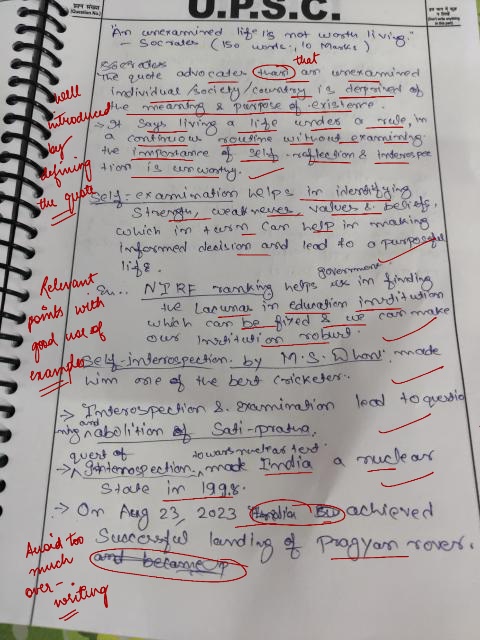 प्रश्न संख्या
(Question No.)
U.P.S.C.
(Don't write anything
"An unexamined life is not worth living."
- Socrates (150 words, 10 Marks)
Socrates
The quote advocates that that an unexamined
individual/society/country is deprived of
the meaning & purpose of existence.
- It says living a life under a rule, in
a continuous routine without examining
the importance of self-reflection & interospec
tion is unworthy.
well
introduced
by
defining
the quote
Self-examination helps in identifying
strength, weaknesses, values & beliefs,
which in turn can help in making
informed decision and lead to a purposeful
life.
NIRF ranking helps us government in finding
the Lacunas in education institution
which can be fixed & we can make
our Institution robust.
Relevant
points with
good use of
examples
Self-interospection by M.S. Dhoni made
him one of the best cricketer.
-> Interospection & examination lead to questio
ning and abolition of Sati-pratha.
-> Interospection towards nuclear test made India a nuclear
State in 1998.
-> On Aug 23, 2023 India achieved
Successful landing of Pragyan rover.
and became
Avoid too
much
over-
writing